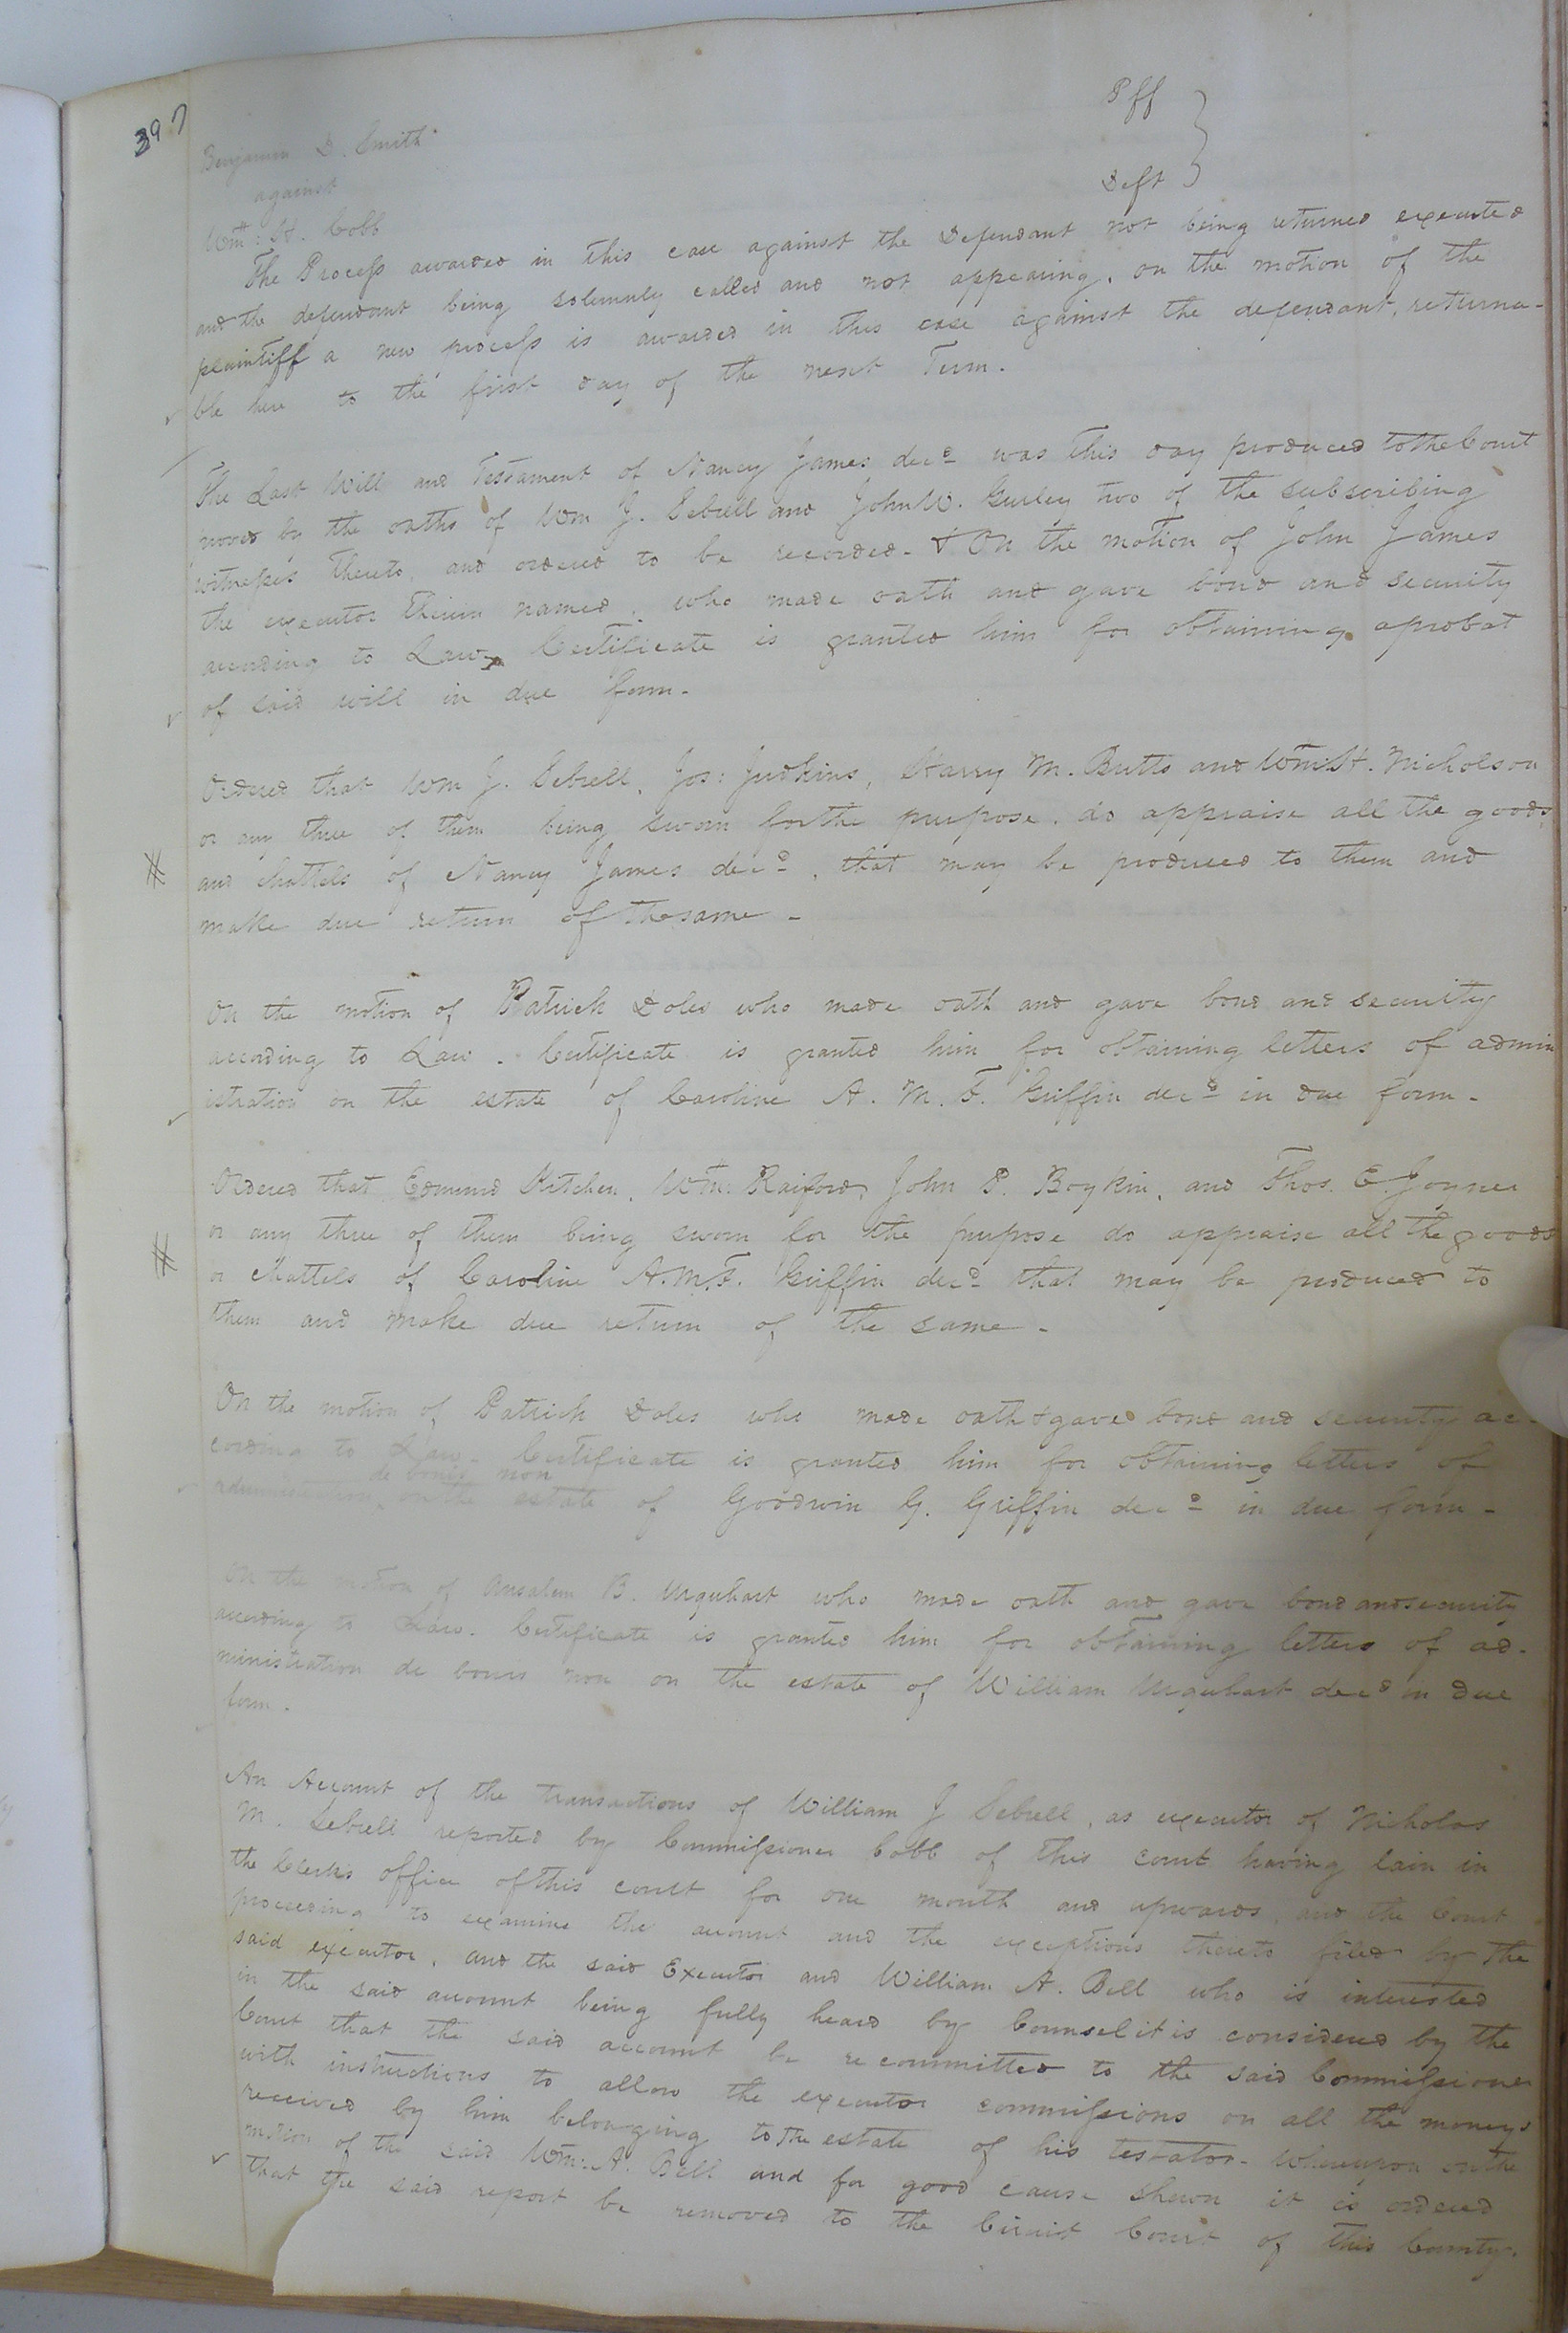 397
Benjamin D. Smith Plff
against
Wm: H. Cobb Deft
The Process awarded in this case against the Defendant not being returned executed
and the defendant being solemnly called and not appearing, on the motion of the
plaintiff a new process is awarded in this case against the defendant, returna-
ble here to the first day of the next Term.
The Last Will and Testament of Nancy James decd was this day produced to the Court
proved by the oaths of Wm J. Sebrell and John W. Gurley two of the subscribing
witnesses thereto, and ordered to be recorded - & On the motion of John James
the executor therein named, who made oath and gave bond and security
according to Law, Certificate is granted him for obtaining a probat
of said will in due form -
Ordered that Wm J. Sebrell, Jos: Judkins, Harry M. Butts and Wm: H. Nicholson
or any three of them being sworn for the purpose, do appraise all the goods
# and chattels of Nancy James decd, that may be produced to them and
make due return of the same -
On the motion of Patrick Doles who made oath and gave bond and security
according to Law. Certificate is granted him for obtaining letters of admin
istration on the estate of Caroline A. M. F. Griffin decd in due form -
Ordered that Edmund Kitchen, Wm: Raiford, John P. Boykin, and Thos. E. Joyner
or any three of them being sworn for the purpose do appraise all the goods
# or chattels of Caroline A. M. F. Griffin decd that may be produced to
them and make due return of the same -
On the motion of Patrick Doles who made oath & gave bond and security ac-
cording to Law - Certificate is granted him for obtaining letters of
de bonis non
administration, on the estate of Goodwin G. Griffin decd in due form -
On the motion of Ansalem B. Urquhart who made oath and gave bond and security
according to Law. Certificate is granted him for obtaining letters of ad-
ministration de bonis non on the estate of William Urquhart decd in due
form.
An Account of the transactions of William J Sebrell, as executor of Nicholas
M. Sebrell reported by Commissioner Cobb of this court having lain in
the Clerks office of this court for one month and upwards, and the Court
proceeding to examine the account and the exceptions thereto filed by the
said executor, and the said Executor and William A. Bell who is interested
in the said account being fully heard by Counsel it is considered by the
Court that the said account be recommitted to the said Commissioner
with instructions to allow the executor commissions on all the moneys
received by him belonging to the estate of his testator - Whereupon on the
motion of the said Wm: A. Bell and for good cause shewn it is ordered
that the said report be removed to the Circuit Court of this County.